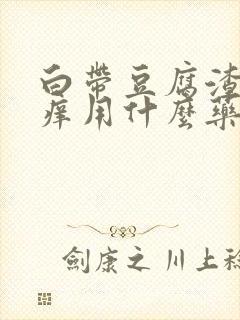 白帶豆腐渣
癢用什麼藥
劍康之 川上稔